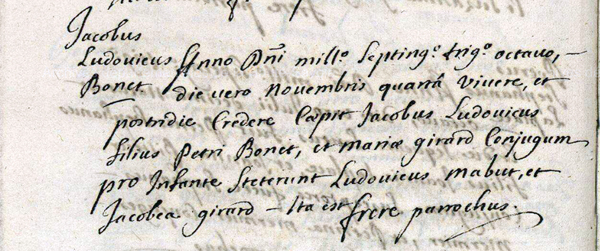 Jacobus
Ludovicus Anno Dñi mill.º Septing.º trig.º octavo, –
Bonet die vero Novembris quartâ vivere, et
postridie Credere Cæpit Jacobus Ludovicus
filius Petri Bonet, et mariæ girard Conjugum
pro Infante Steterunt Ludovicus mabut, et
Jacobea girard – Ita est frere parrochus.